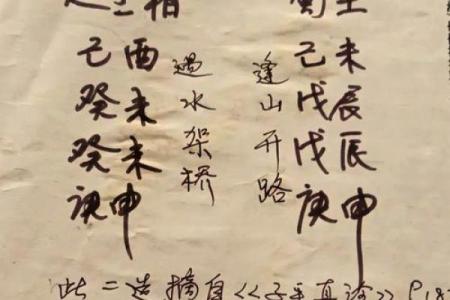 丞相
己酉
癸未
癸未
庚申
遇水架桥
逢山开路
王
己未
戊辰
戊辰
庚申
此二造摘自《子平真诠》P